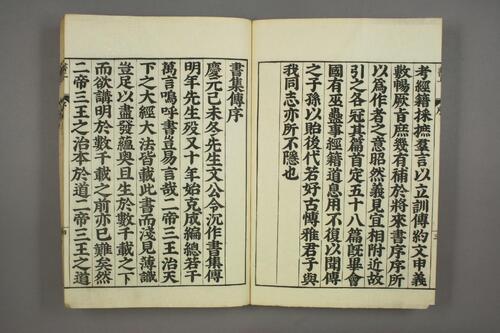 考經籍採摭羣言以立訓傳約文申義
敷暢厥旨庶幾有補於將來書序序所
以爲作者之意昭然義見宜相附近故
引之各冠其篇首定五十八篇既畢會
國有巫蠱事經籍道息用不復以聞傳
之子孫以貽後代若好古愽雅君子與
我同志亦所不隱也
書集傳序
慶元己未冬先生文公令沈作書集傳
明年先生殁又十年始克成編總若干
萬言嗚呼書豈易言哉二帝三王治天
下之大經大法皆載此書而淺見薄識
豈足以盡發蘊奧且生於數千載之下
而欲講明於數千載之前亦已難矣然
二帝三王之治本於道二帝三王之道